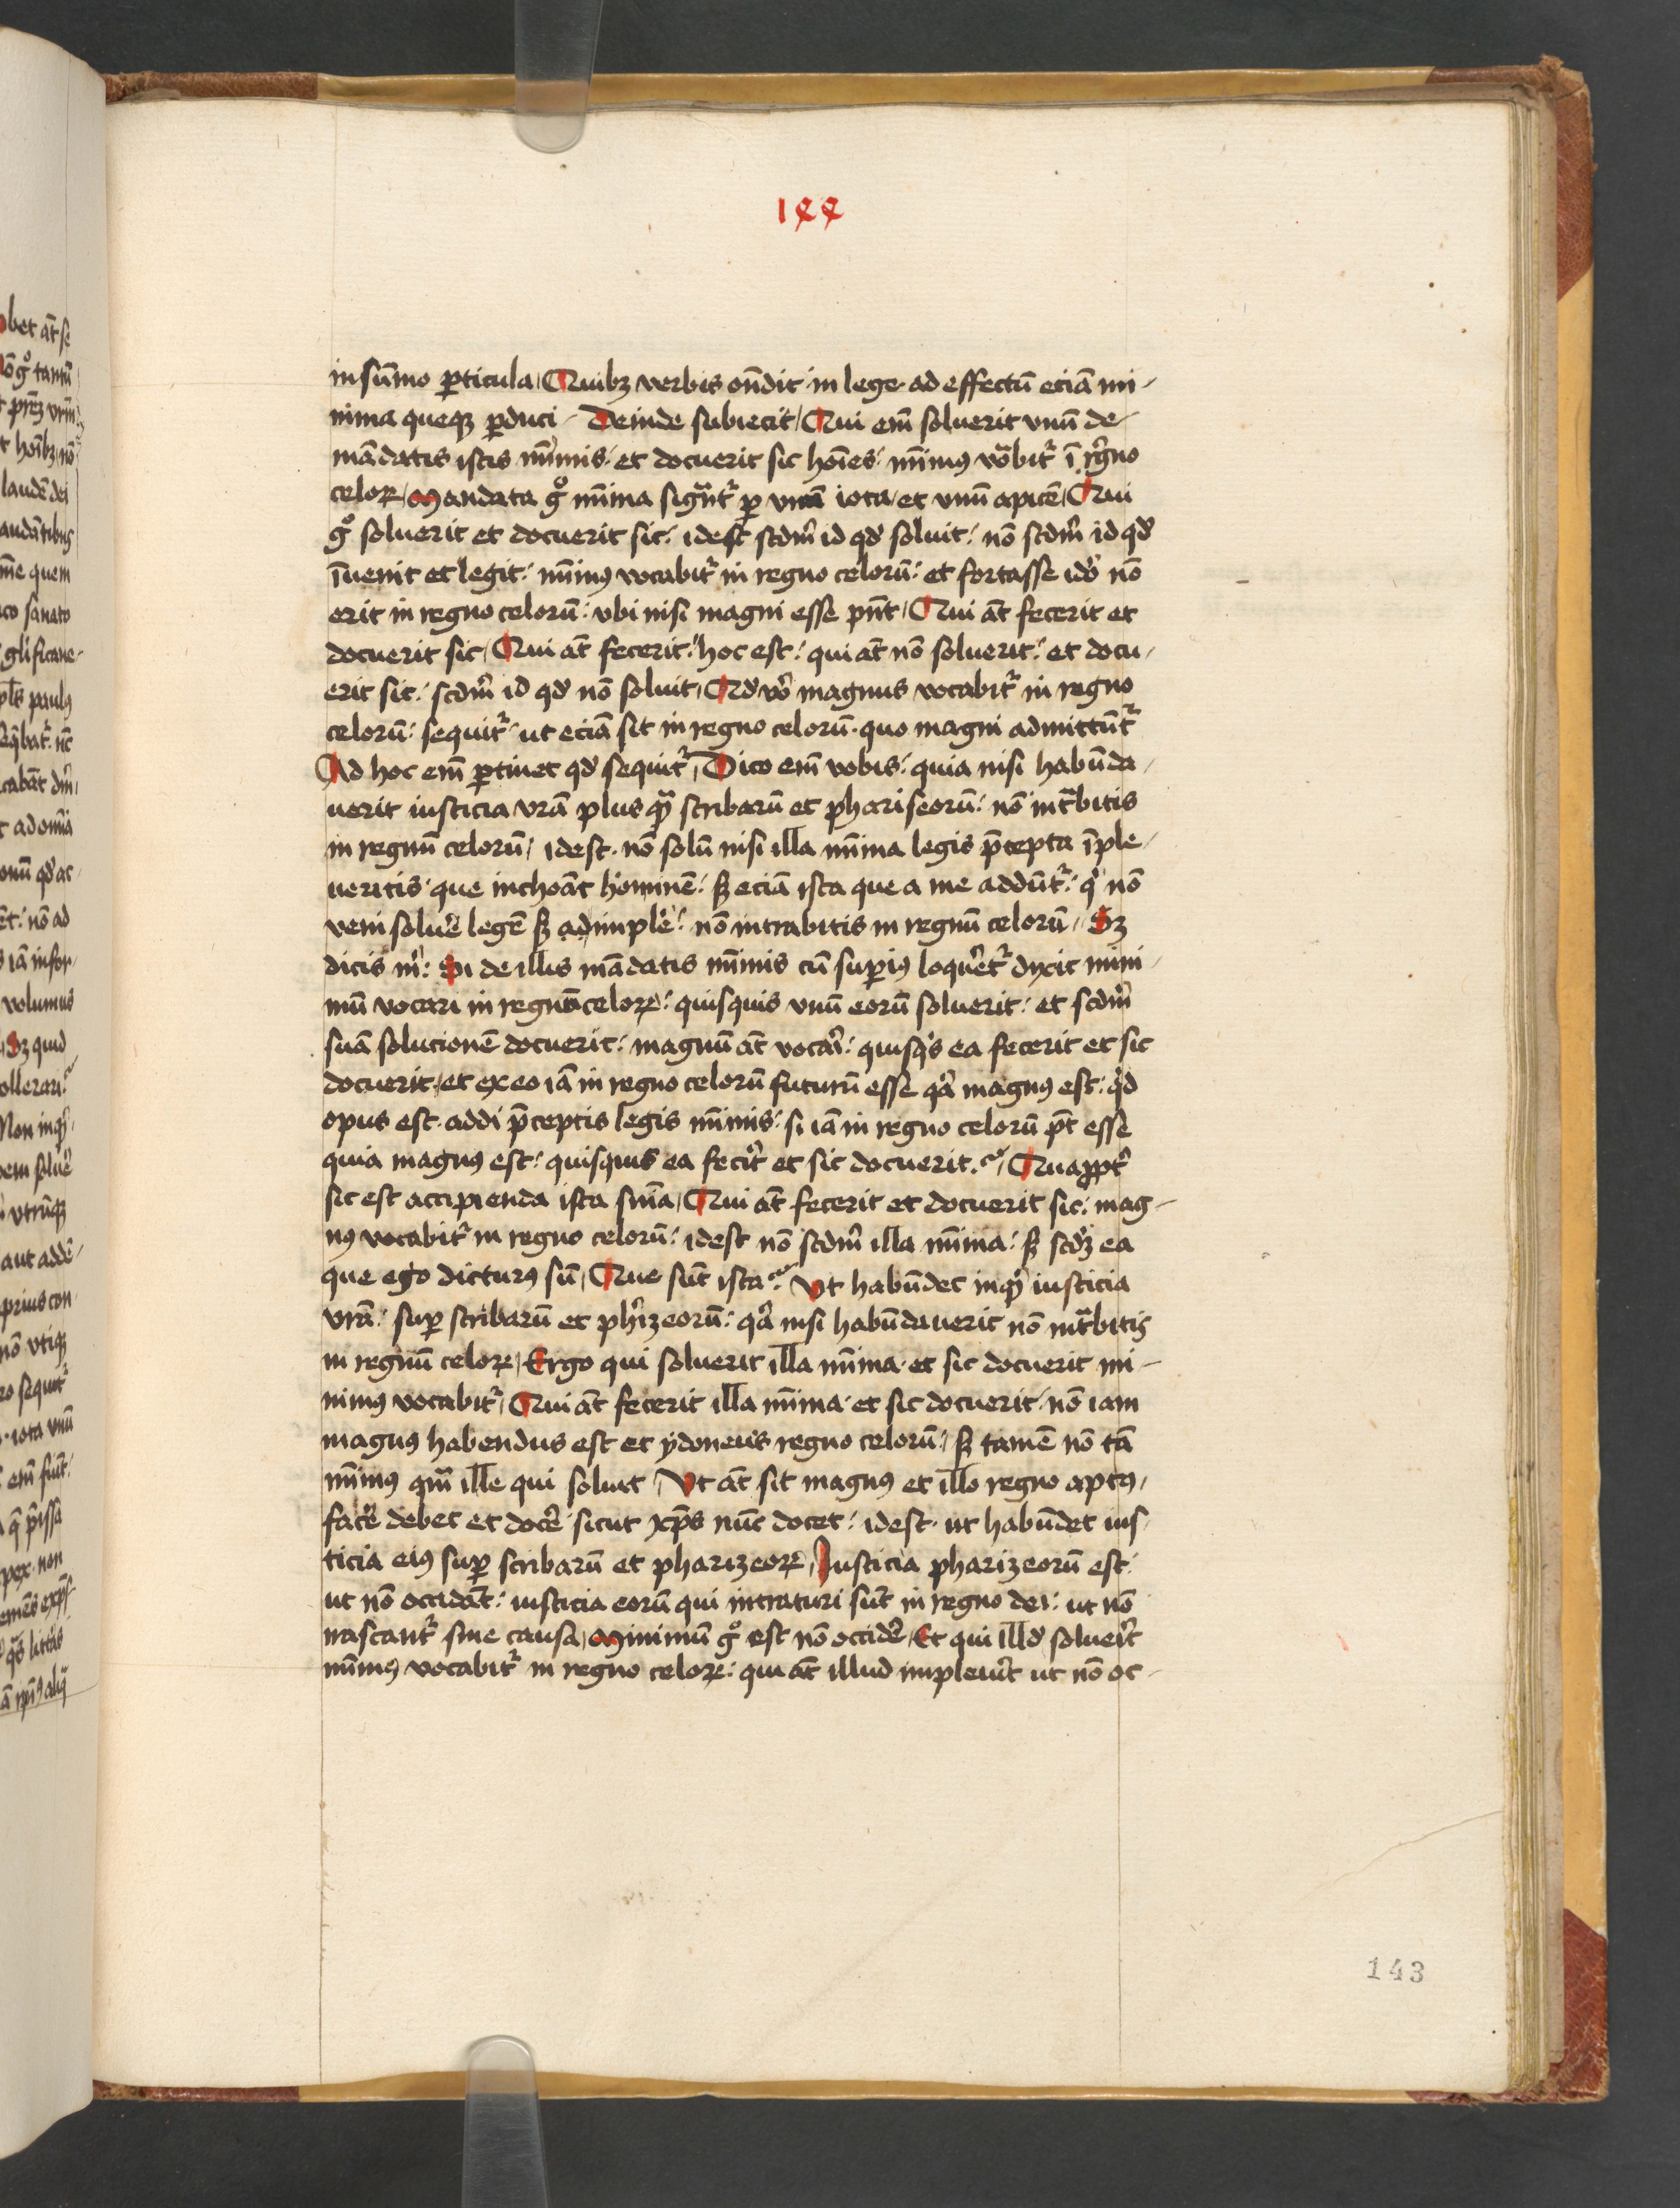 144
in sūmo ꝑticula Quibꝫ verbis on̄dit in lege ad effectū eciā mi-
nima queqꝫ ꝑduci Deinde subiecit Qui em̄ soluerit vnū de
mādatis istis mīmis et docuerit sic hoīes mīmus vocabitr ī regno
celoꝝ Mandata gͦ mīma sigͣntr ꝑ vnū iota et vnū apicē Qui
gͦ soluerit et docuerit sic idest scdm̄ id qd̄ soluit nō scdm̄ id qd̄
īuenit et legit mīmus vocabitr in regno celorū et fortasse ido nō
erit in regno celorū vbi nisi magni esse pn̄t Qui āt fecerit et
docuerit sic Qui āt fecerit hoc est qui āt nō soluerit et docu
erit sic scdm̄ id qd̄ nō soluit Qd̄ vo magnus vocabitr in regno
celorū sequitr ut eciā sit in regno celorū quo magni admittūtr
Ad hoc em̄ ꝑtinet qd̄ sequitr Dico em̄ vobis quia nisi habūda
uerit iusticia vrā plus qͣ scribarū et phariseorū nō intͣbitis
in regnū celorū idest nō solū nisi illa mīma legis p̄cepta īple
ueritis que inchoāt hominē sꝫ eciā ista que a me addūtr qͥ nō
veni soluē legē sꝫ adimplē nō intrabitis in regnū celorū Sꝫ
dicis mͥ Si de illis mādatis mīmis cū suꝑius loqueretr dyxit mini
mū vocari in regno celoꝝ quisquis vnū eorū soluerit et scdm̄
suā solucionē docuerit magnū āt vocari quisqͥs ea fecerit et sic
docuerit et ex eo iā in regno celorū futurū esse qͣ magnus est qͥd
opus est addi p̄ceptis legis mīmis si iā in regno celorū pt̄ esse
quia magnus est quisquis ea fecit et sic docuerit Quaꝓptr
sic est accipienda ista sn̄ia Qui āt fecerit et docuerit sic mag-
nus vocabitr in regno celorū idest nō scdm̄ illa mīma sꝫ scdꝫ ea
que ego dicturus sū Que sūt ista Ut habūdet inqͥ iusticia
vrā suꝑ scribarū et phizeorū qͣ nisi habūdauerit nō intͣbitis
in regnū celoꝝ Ergo qui soluerit illa mīma et sic docuerit mi-
nimus vocabitr Qui āt fecerit illa mīma et sic docuerit nō iam
magnus habendus est et ydoneus regno celorū sꝫ tamē nō tā
mīmus qm̄ ille qui soluit Ut āt sit magnus et illo regno aptus
facē debet et docē sicut xp̄s nūc docet idest ut habūdet ius
ticia eius suꝑ scribarū et pharizeoꝝ Iusticia pharizeorū est
ut nō occidāt iusticia eorū qui intraturi sūt in regno dei ut nō
irascantr sine causa Minimū gͦ est nō occidē Et qui illd̄ soluerit
mīmus vocabitr in regno celoꝝ qui āt illud impleuit ut nō oc-
143